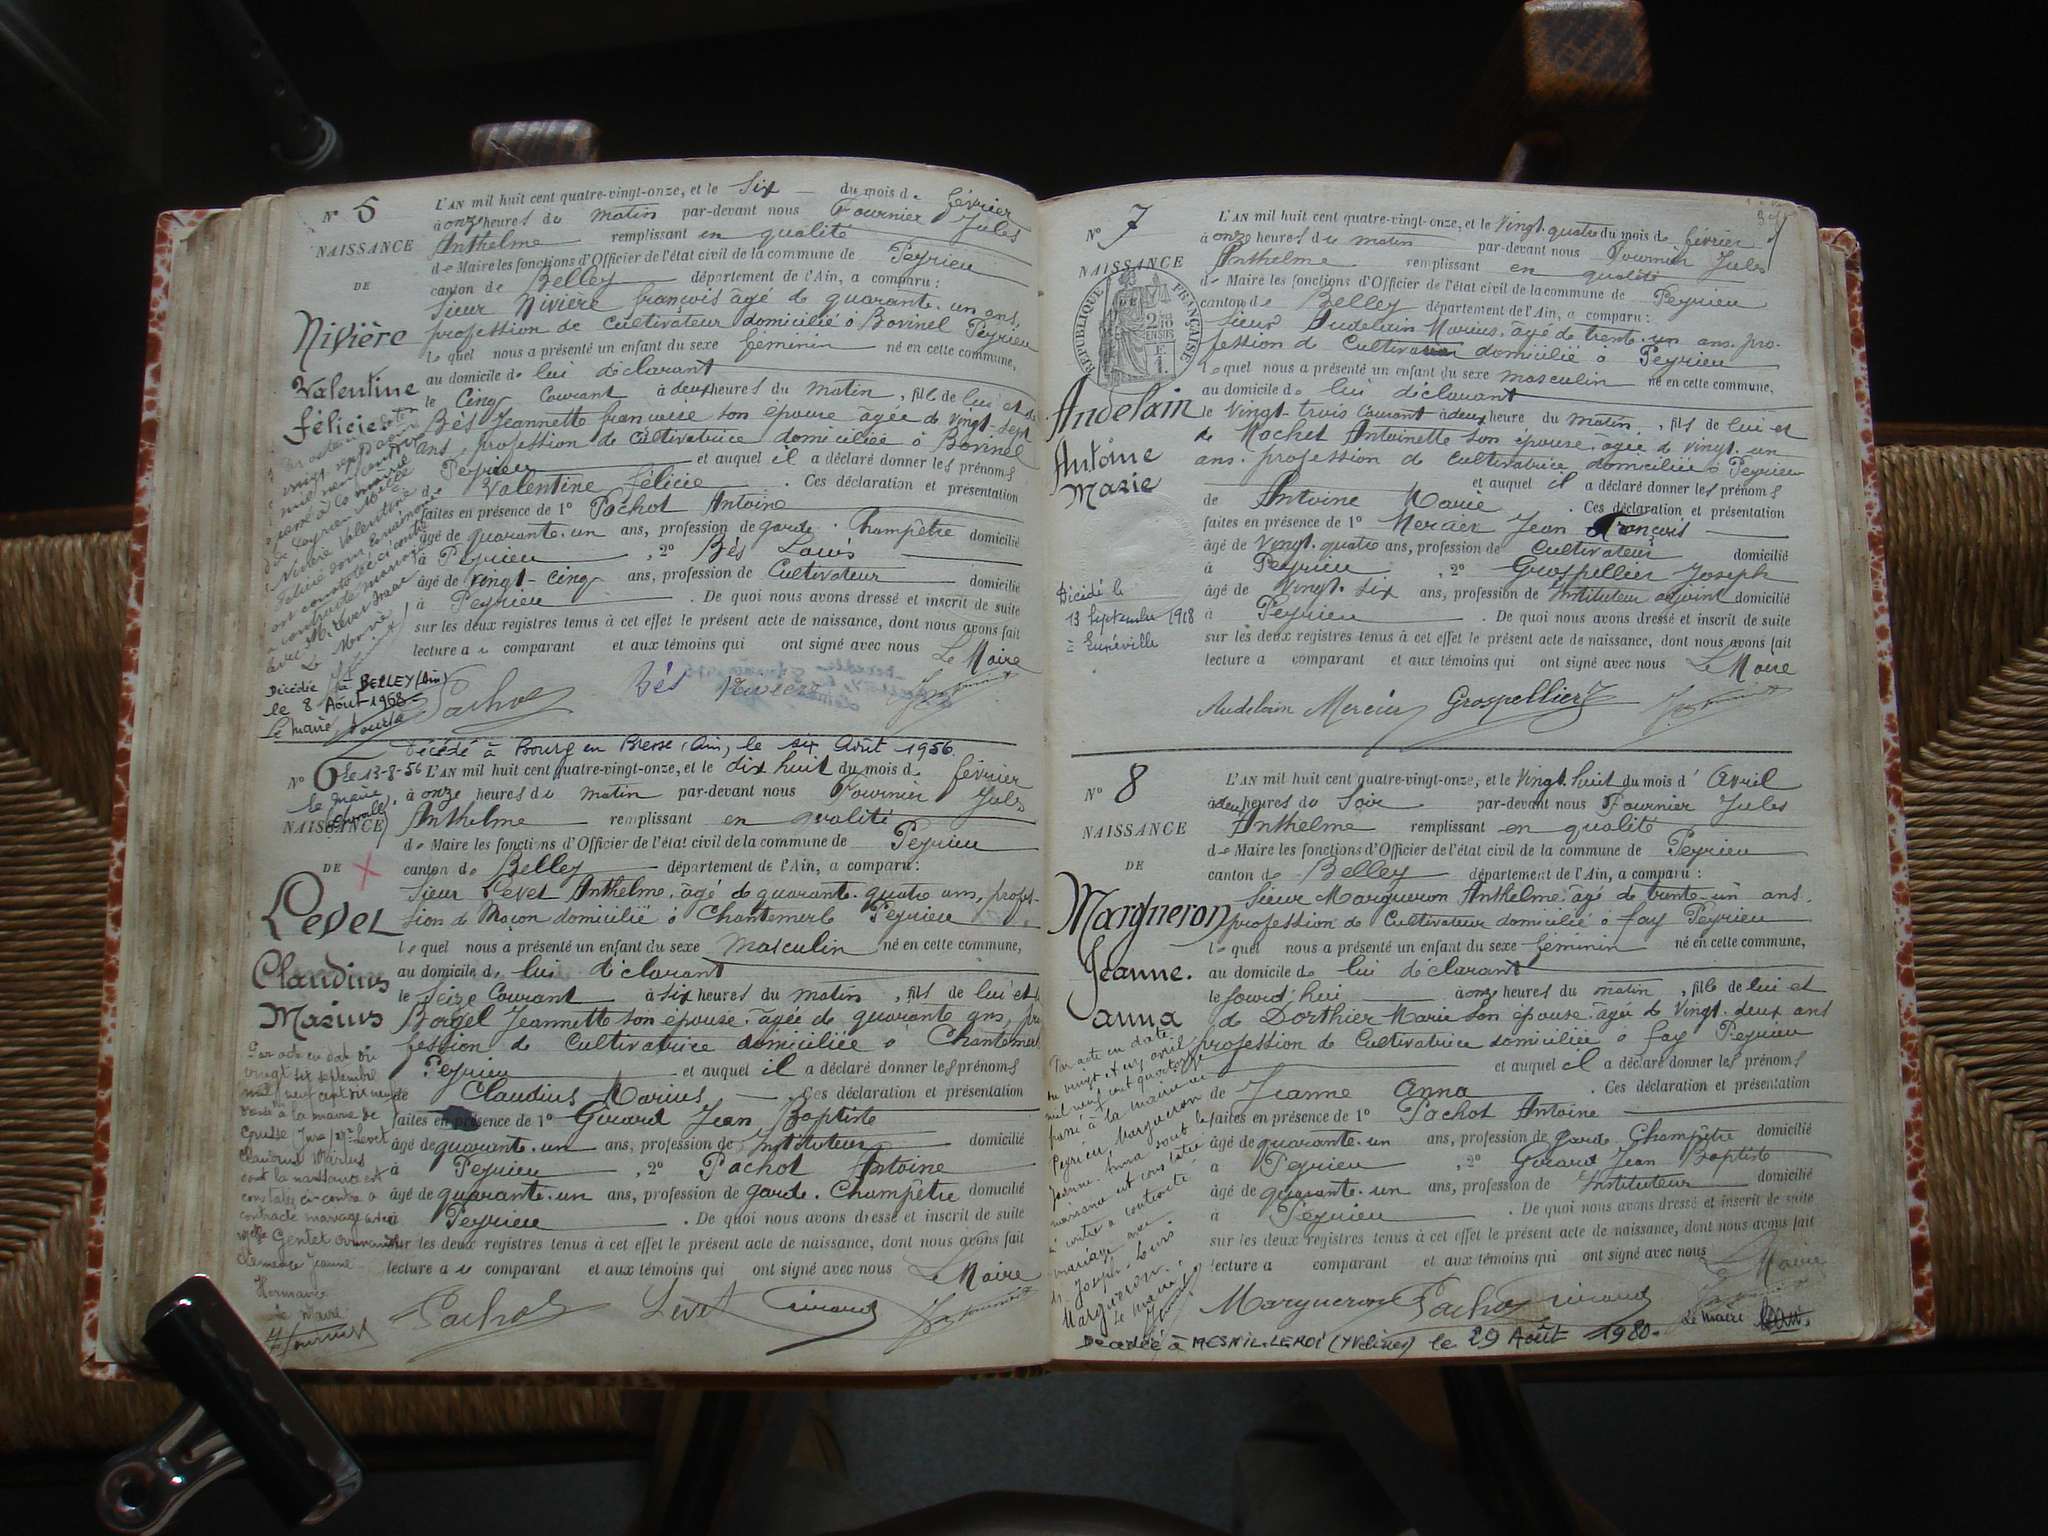 N° 5
NAISSANCE
DE
Nivière
Valentine
Félicie
L'AN mil huit cent quatre-vingt-onze, et le Six — du mois de février
à onze heures du matin par-devant nous Fournier Jules
Anthelme remplissant en qualité
de Maire les fonctions d'Officier de l'état civil de la commune de Peyrieu
canton de Belley département de l'Ain, a comparu :
Sieur Nivière françois âgé de quarante-un ans,
profession de Cultivateur domicilié à Bovinel Peyrieu
lequel nous a présenté un enfant du sexe féminin né en cette commune,
au domicile de lui déclarant
le Cinq Courant à deux heures du matin, fille de lui et de
Bés Jeannette françoise son épouse âgée de vingt-sept
ans, profession de Cultivatrice domiciliée à Bovinel
Peyrieu et auquel il a déclaré donner les prénoms
de Valentine Félicie. Ces déclaration et présentation
faites en présence de 1° Pachot Antoine
âgé de quarante-un ans, profession de garde-Champêtre domicilié
à Peyrieu, 2° Bés Louis
âgé de vingt-cinq ans, profession de Cultivateur domicilié
à Peyrieu. De quoi nous avons dressé et inscrit de suite
sur les deux registres tenus à cet effet le présent acte de naissance, dont nous avons fait
lecture au comparant et aux témoins qui ont signé avec nous Le Maire
Pachot Bés Nivière
Décédée à BELLEY (Ain)
le 8 Août 1968
Le maire
Décédé à Bourg en Bresse (Ain) le six Août 1956.
N° 6
le 13-8-56
le maire
NAISSANCE
DE
Levet
Claudius
Marius
L'AN mil huit cent quatre-vingt-onze, et le dix huit du mois de février
à onze heures du matin par-devant nous Fournier Jules
Anthelme remplissant en qualité
de Maire les fonctions d'Officier de l'état civil de la commune de Peyrieu
canton de Belley département de l'Ain, a comparu :
Sieur Levet Anthelme, âgé de quarante-quatre ans, profes-
sion de Maçon domicilié à Chantemerle Peyrieu
lequel nous a présenté un enfant du sexe masculin né en cette commune,
au domicile de lui déclarant
le Seize Courant à six heures du matin, fils de lui et de
Borgel Jeannette son épouse, âgée de quarante ans, pro
fession de Cultivatrice domiciliée à Chantemerle
Peyrieu et auquel il a déclaré donner les prénoms
de Claudius Marius. Ces déclaration et présentation
faites en présence de 1° Girard Jean Baptiste
âgé de quarante-un ans, profession de Instituteur domicilié
à Peyrieu, 2° Pachot Antoine
âgé de quarante-un ans, profession de garde-Champêtre domicilié
à Peyrieu. De quoi nous avons dressé et inscrit de suite
sur les deux registres tenus à cet effet le présent acte de naissance, dont nous avons fait
lecture au comparant et aux témoins qui ont signé avec nous Le Maire
Pachot Levet Girard
Par acte en date du
vingt six septembre
mil neuf cent dix neuf
à la mairie de
Cousse (Jura) Mr Levet
Claudius Marius
dont la naissance est
constatée ci-contre a
contracté mariage avec
Melle Gentet
Clémence Jeanne
Hermance
Le Maire
N° 7
NAISSANCE
DE
RÉPUBLIQUE FRANÇAISE
Audelain
Antoine
Marie
L'AN mil huit cent quatre-vingt-onze, et le vingt-quatre du mois de février
à onze heures du matin par-devant nous Fournier Jules
Anthelme remplissant en qualité
de Maire les fonctions d'Officier de l'état civil de la commune de Peyrieu
canton de Belley département de l'Ain, a comparu :
Sieur Audelain Marius, âgé de trente-un ans, pro-
fession de Cultivateur domicilié à Peyrieu
lequel nous a présenté un enfant du sexe masculin né en cette commune,
au domicile de lui déclarant
le vingt-trois Courant à deux heure du matin, fils de lui et
de Mochet Antoinette son épouse âgée de vingt-un
ans, profession de cultivatrice domiciliée à Peyrieu
et auquel il a déclaré donner les prénoms
de Antoine Marie. Ces déclaration et présentation
faites en présence de 1° Mercier Jean François
âgé de vingt-quatre ans, profession de Cultivateur domicilié
à Peyrieu, 2° Grospellier Joseph
âgé de vingt-six ans, profession de Instituteur adjoint domicilié
à Peyrieu. De quoi nous avons dressé et inscrit de suite
sur les deux registres tenus à cet effet le présent acte de naissance, dont nous avons fait
lecture a comparant et aux témoins qui ont signé avec nous Le Maire
Audelain Mercier Grospellier
Décédé le
13 Septembre 1918
à Lunéville
N° 8
NAISSANCE
DE
Margueron
Jeanne
anna
L'AN mil huit cent quatre-vingt-onze, et le vingt-huit du mois d'Avril
à deux heures du Soir par-devant nous Fournier Jules
Anthelme remplissant en qualité
de Maire les fonctions d'Officier de l'état civil de la commune de Peyrieu
canton de Belley département de l'Ain, a comparu :
Sieur Margueron Anthelme, âgé de trente-un ans,
profession de Cultivateur domicilié à fay Peyrieu
lequel nous a présenté un enfant du sexe féminin né en cette commune,
au domicile de lui déclarant
le jourd'hui à onze heures du matin, fille de lui et
de Dorthier Marie son épouse, âgée de vingt-deux ans
profession de Cultivatrice domiciliée à fay Peyrieu
et auquel il a déclaré donner les prénoms
de Jeanne Anna. Ces déclaration et présentation
faites en présence de 1° Pachot Antoine
âgé de quarante-un ans, profession de garde-Champêtre domicilié
à Peyrieu, 2° Girard Jean Baptiste
âgé de quarante-un ans, profession de Instituteur domicilié
à Peyrieu. De quoi nous avons dressé et inscrit de suite
sur les deux registres tenus à cet effet le présent acte de naissance, dont nous avons fait
lecture a comparant et aux témoins qui ont signé avec nous Le Maire
Margueron Pachot Girard
Par acte en date
du vingt et un avril
mil neuf cent quatorze
passé à la mairie de
Peyrieu, Margueron
Jeanne Anna dont la
naissance est constatée
ci contre a contracté
mariage avec
Joseph Louis
Margueron.
Le maire
Décédée à MESNIL-LEROI (Yvelines) le 29 Août 1980. Le maire